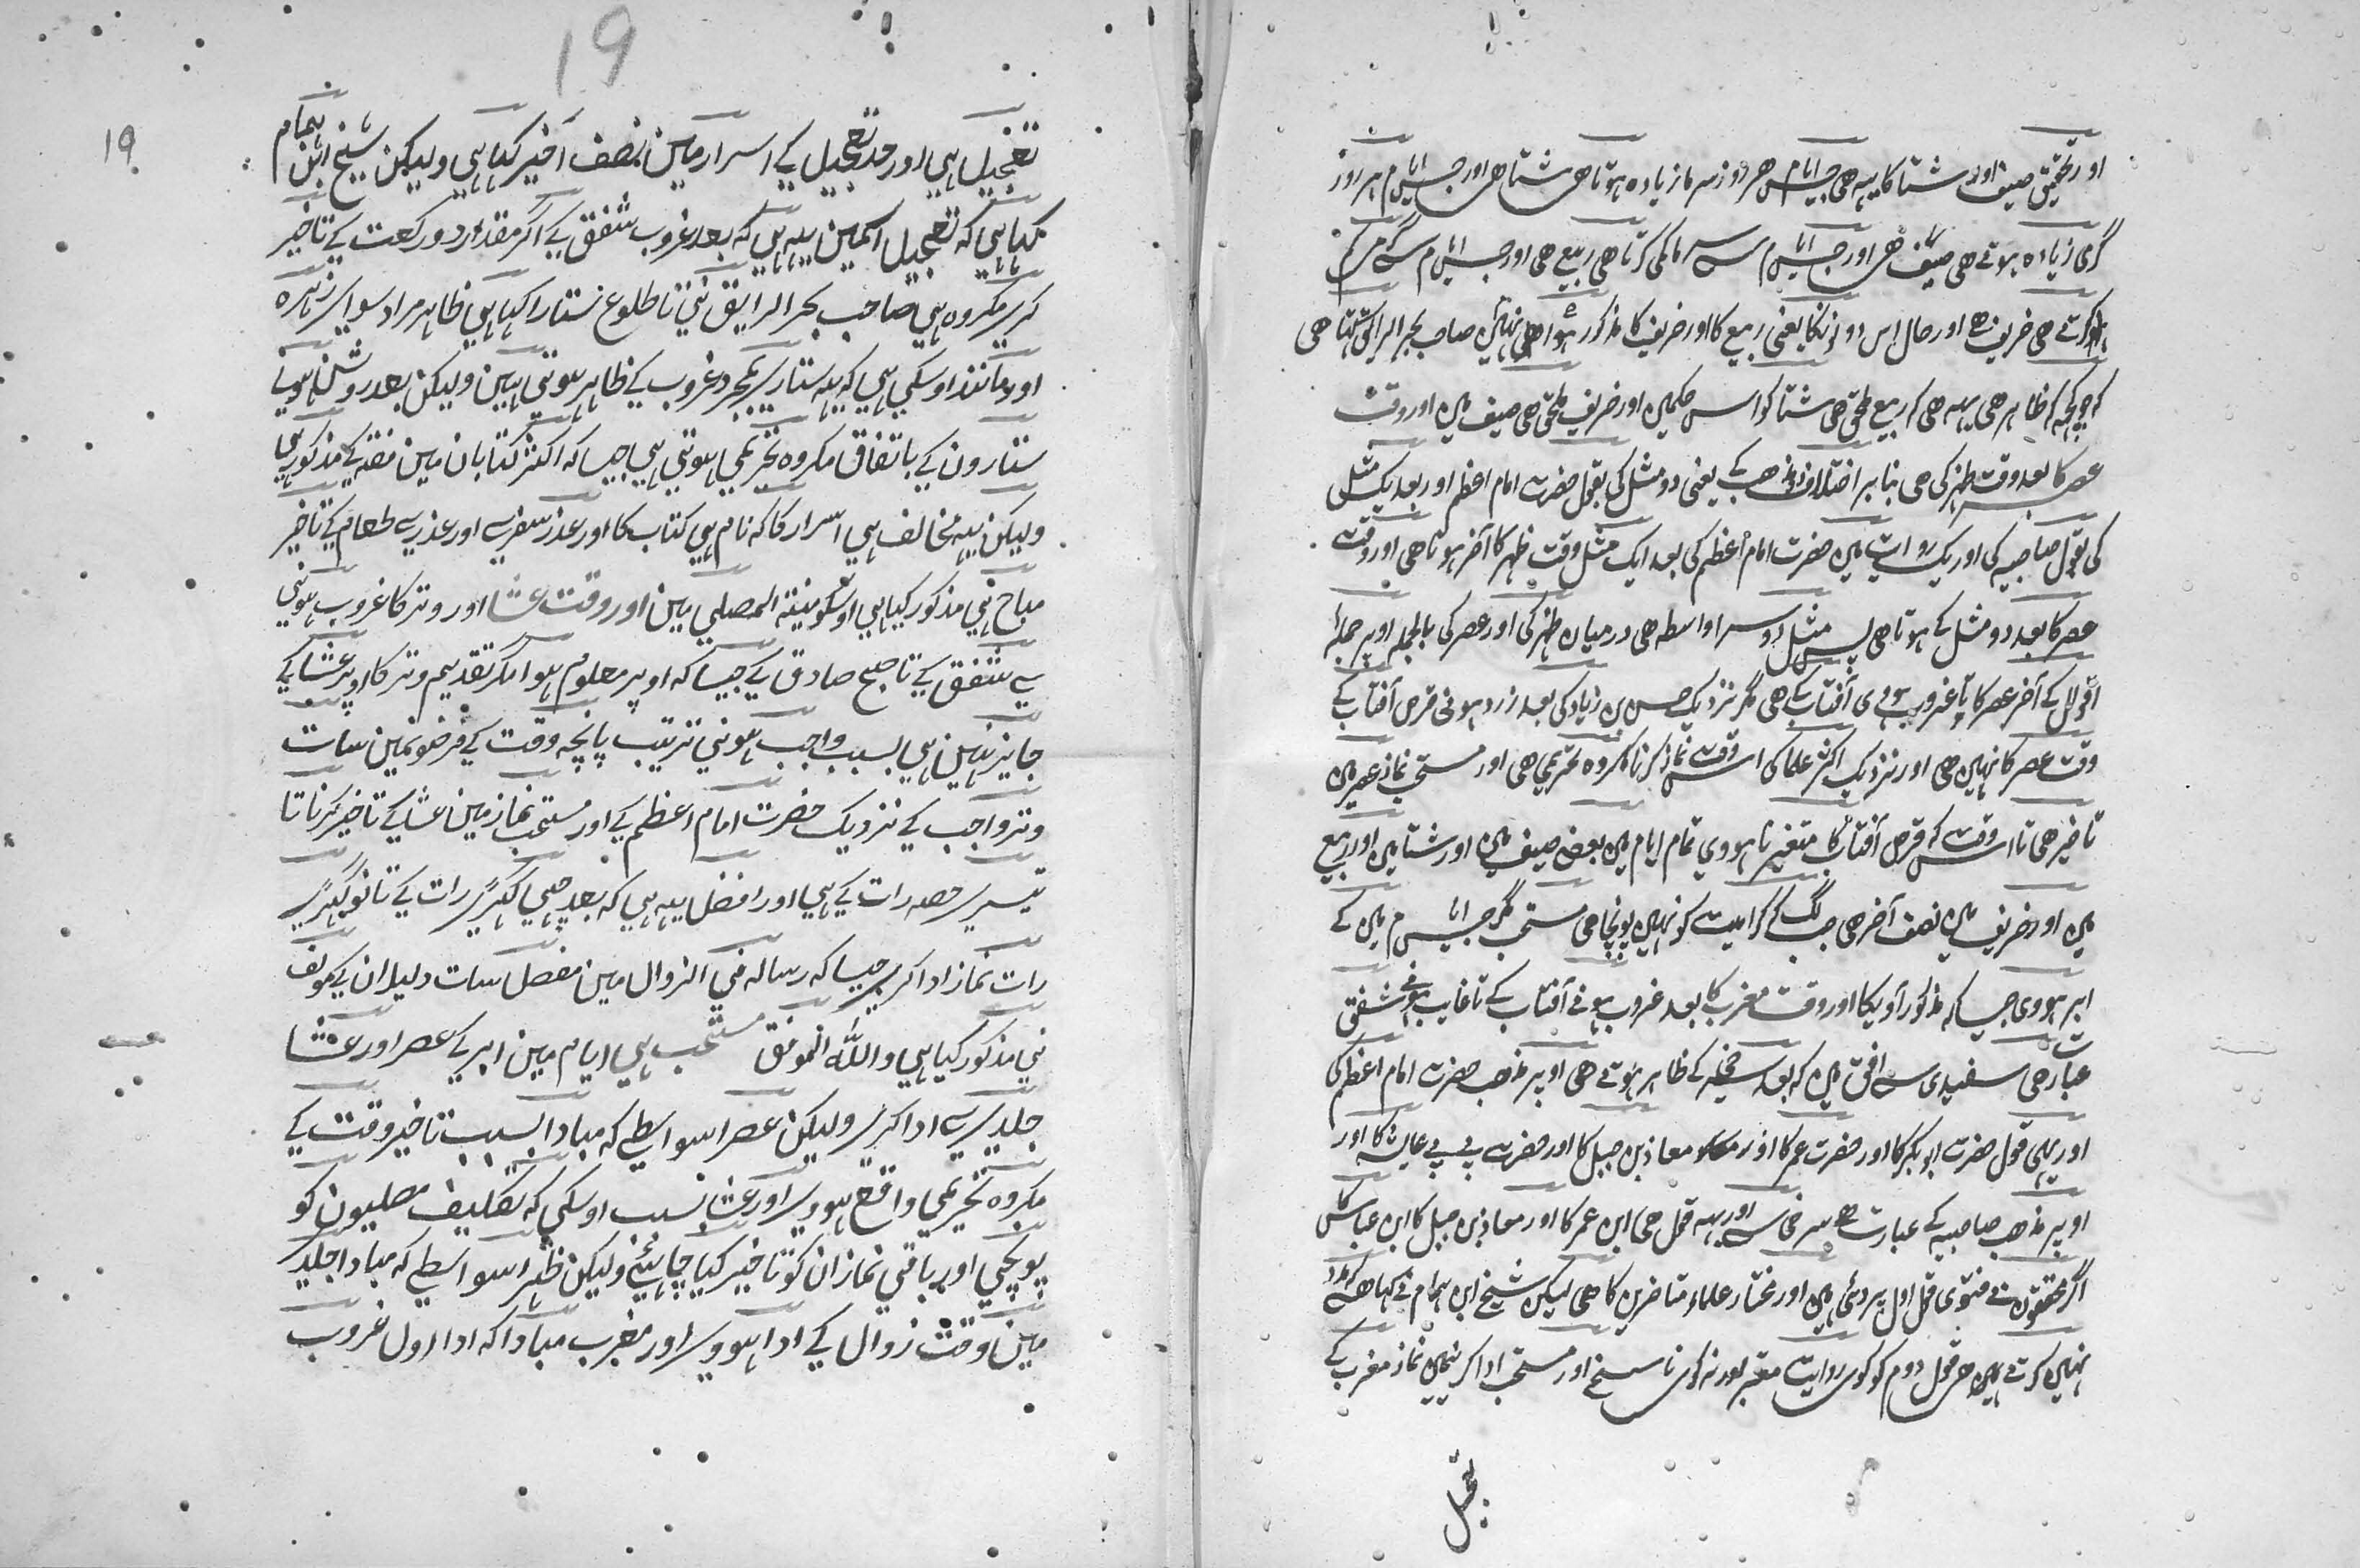 اور تحقیق صیف اور شتا کا یہہ هی جس ایام میں هر روز سرما زیادہ ہوتا هی شتا هی اور جس ایام میں ہر روز
گرمی زیادہ ہوتے هی صیف هی اور جس ایام میں سرما کمی کرتا هی ربیع هی اور جس ایام میں گرمی کم
کرتے هی خریف هے اور حال اس دونونکا یعنی ربیع کا اور خریف کا مذکور ہوا هی نہیں صاحب بحر الرایق کہتا هی
کہ جو کچہ کہ ظاہر هی یہہ هی کہ ربیع ملحق هی شتا کو اس حکمیں اور خریف ملحق هی صیف میں اور وقت
عصر کا بعد وقت ظہر کی هی بنابر اختلاف مذهب کے یعنی دو مثل کی بقول حضرت امام اعظم اور بعد یک مثل
کی بقول صاحبیہ کی اور یک روایت میں حضرت امام اعظم کی بعد ایک مثل وقت ظہر کا آخر ہوتا هی اور وقت
عصر کا بعد دو مثل کے ہوتا هی پس مثل دوسرا واسطہ هی درمیان ظہر کی اور عصر کی بالجملہ اوپر جملہ
اقوال کے آخر عصر کا تا غروب ہووی آفتاب کے هی مگر نزدیک حسن بن زیاد کی بعد زرد ہونی قرص آفتاب کے
وقت عصر کا نہیں هی اور نزدیک اکثر علما کی اس وقت نماز کرنا مکروہ تحریمی هی اور مستحب نماز عصر میں
تاخیر هی تا اس وقت کہ قرص آفتاب کا متغیر نا ہووی تمام ایام میں بعض صیف میں اور شتا میں اور ربیع
میں اور خریف میں نصف آخر هی جب لگ کے کراہیت کو نہیں پونچا هی مستحب مگر جس ایام میں کے
ابر ہووی جیسا کہ مذکور آویگا اور وقت مغرب کا بعد غروب ہونے آفتاب کے تا غایب ہونے شفق
عبارت هی سفیدی سے افق میں کہ بعد سرخی کے ظاہر ہوتے هی اوپر مذهب حضرت امام اعظم کی
اور یہی قول حضرت ابو بکر کا اور حضرت عمر کا اور معاذ بن جبل کا اور حضرت بی بی عایشہ کا اور
اوپر مذهب صاحبیہ کے عبارت هے سرخی سے اور یہہ قول هی ابن عمر کا اور معاذ بن جبل کا ابن عباس کا
اگر محققون نے فتوی قول اول پر دئی ہیں اور مختار علماء متاخرین کا هی لیکن شیخ ابن ہمام نے کہا هے کہ رد
نہیں کرتے ہیں هر قول دوم کو کوی روایت معتبر اور نہ کوی نا سنخ اور مستحب ادا کرنیمیں نماز مغرب کے
تعجیل
19
19
تعجیل ہی اور حد تعجیل کے اسرار میں نصف آخیر کہا ہی ولیکن شیخ ابن ہمام
کہا ہی کہ تعجیل اسمین یہہ ہی کہ بعد غروب شفق کے اگر مقدار دو رکعت کے تاخیر
کری مکروہ ہی صاحب بحر الرایق نی تا طلوع ستارا کہا ہی ظاہر مراد سوای زہرہ
اور مانند اوسکی ہی کہ یہہ ستاری بمجرد غروب کے ظاہر ہوتی ہیں ولیکن بعد روشن ہونے
ستارون کے باتفاق مکروہ تحریمی ہوتی ہی جیسا کہ اکثر کتابان میں فقہ کے مذکور ہی
ولیکن یہہ مخالف ہی اسرار کا کہ نام ہی کتاب کا اور عذر سفری اور عذری طعام کے تاخیر
مباح نی مذکور کیا ہی اوسکو منیۃ المصلی میں اور وقت عشا اور وتر کا غروب ہونی
سے شفق کے تا صبح صادق کے جیسا کہ اوپر معلوم ہوا مگر تقدیم وتر کا اوپر عشا کے
جایز نہیں ہی بسبب واجب ہونی ترتیب پانچہ وقت کے فرضونمین سات
وتر واجب کے نزدیک حضرت امام اعظم کے اور مستحب نماز میں عشا کے تاخیر کرنا تا
تیسری حصہ رات کے ہی اور افضل یہہ ہی کہ بعد چہی گہڑی رات کے تا نو گہڑی
رات نماز ادا کری جیسا کہ رسالہ فی الزوال میں مفصل سات دلیلان کے مولف
نی مذکور کیا ہی واللہ الموفق مستحب ہی ایام میں ابر کے عصر اور عشا
جلدی سے ادا کری ولیکن عصر اسواسطے کہ مبادا بسبب تاخیر وقت کے
مکروہ تحریمی واقع ہووی اور عشا بسب اوسکی کہ تکلیف مصلیون کو
پونچی اور باقی نمازان کو تاخیر کیا چاہئے ولیکن ظہر اسواسطے کہ مبادا جلد
میں وقت زوال کے ادا ہووی اور مغرب مبادا کہ ادا اول غروب